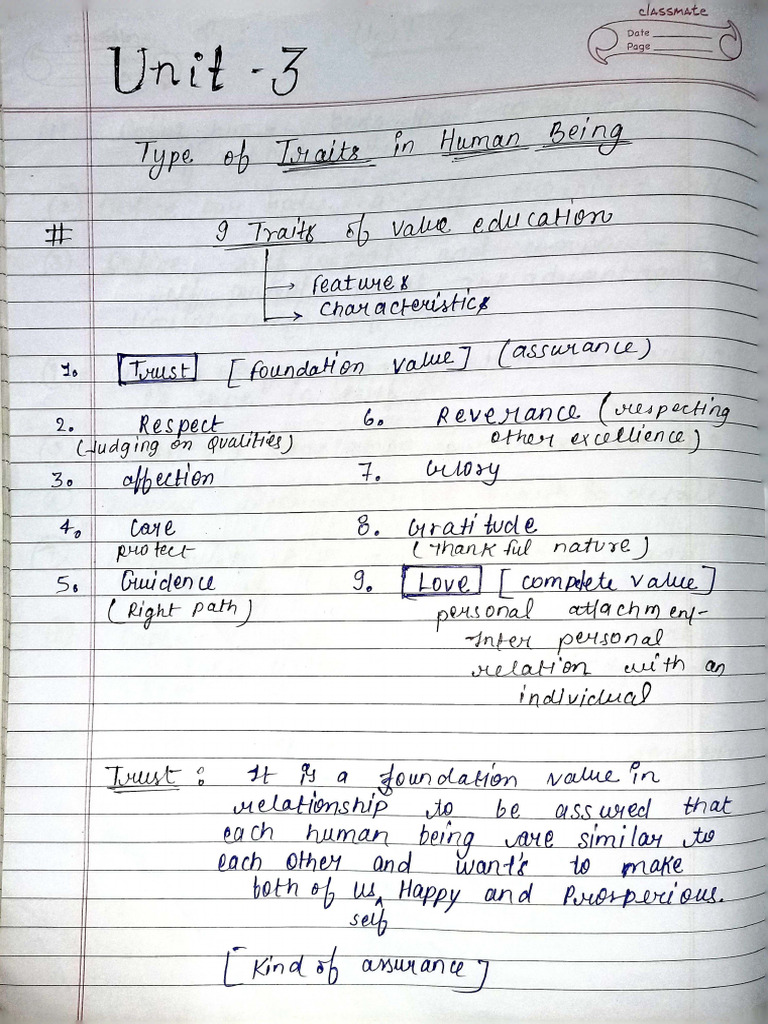 classmate
Date
Page
Unit - 3
Type of Traits in Human Being
# 9 Traits of value education
→ features
→ characteristics
1. Trust [foundation value] (assurance)
2. Respect 6. Reverance (respecting
(Judging on Qualities) other excellience)
3. affection 7. Glory
4. Care 8. Gratitude
protect (Thankful nature)
5. Guidence 9. Love [complete value]
(Right path) personal attachment-
Inter personal
relation with an
individual
Trust : It is a foundation value in
relationship to be assured that
each human being are similar to
each other and want's to make
both of us, Happy and Prosperious.
self
[Kind of assurance]